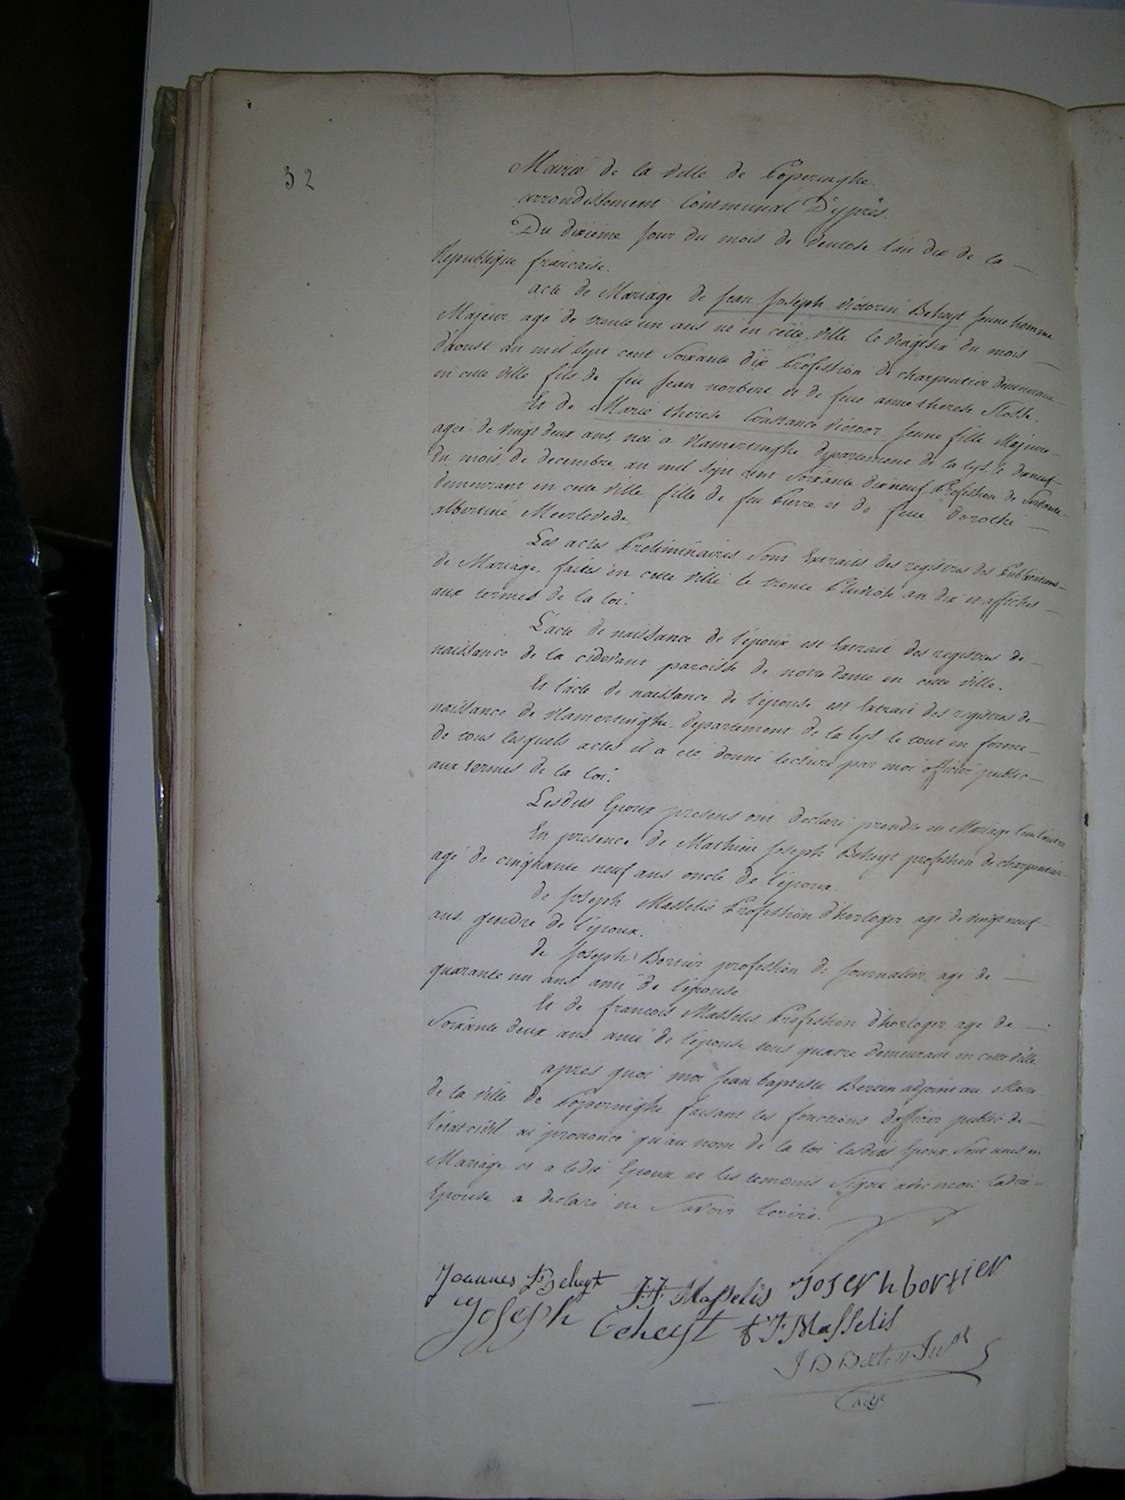 32
Mairie de la ville de Poperinghe
arrondissement Communal D'ypres.
Du dixieme jour du mois de ventose l'an dix de la
Republique francaise.
acte de Mariage de jean joseph victorin Beheyt jeune homme
Majeur agé de trente un ans né en cette ville le vingtsix du mois
d'aoust an mil sept cent soixante dix Profession de charpentier demeurant
en cette ville fils de feu jean norbert et de feue anne therese
Et de Marie therese Constance victoor jeune fille Majeure
agée de vingt deux ans, née a vlamertinghe departement de la lys le dixneuf
du mois de decembre an mil sept cent soixante dixneuf Profession de Servante
demeurant en cette ville fille de feu Pierre et de feue dorothé
albertine Meerlevede
Les actes Preliminaires Sont Extraits des registres des Publications
de Mariage faites en cette ville le trente Pluviose an dix et affiches
aux termes de la loi.
L'acte de naissance de l'epoux est Extrait des registres de
naissance de la cidevant paroisse de notre dame en cette ville.
Et l'acte de naissance de l'epouse est Extrait des registres de
naissance de vlamertinghe departement de la lys le tout en forme
de tous lesquels actes il a eté donné lecture par moi officier public
aux termes de la loi.
Lesdits Epoux presens ont declaré prendre en Mariage
En presence de Mathieu joseph Beheyt profession de charpentier
agé de cinquante neuf ans oncle de l'epoux.
de joseph Masselis Profession d'horloger age de vingt neuf
ans gendre de l'epoux.
de joseph Bortier profession de journalier age de
quarante un ans ami de l'epouse
Et de francois Masselis Profession d'horloger age de
soixante deux ans ami de l'epouse tous quatre demeurant en cette ville
apres quoi moi jean baptiste adjoint au Maire
de la ville de Poperinghe faisant les fonctions d'officier public de
l'etat civil ai prononcé qu'au nom de la loi lesdits Epoux Sont unis en
Mariage et a ledit Epoux et les temoins Signé avec moi ladite
Epouse a declaré ne Savoir Ecrire.
Joannes Beheyt JJ Masselis joseph bortier
Joseph Beheyt F J Masselis